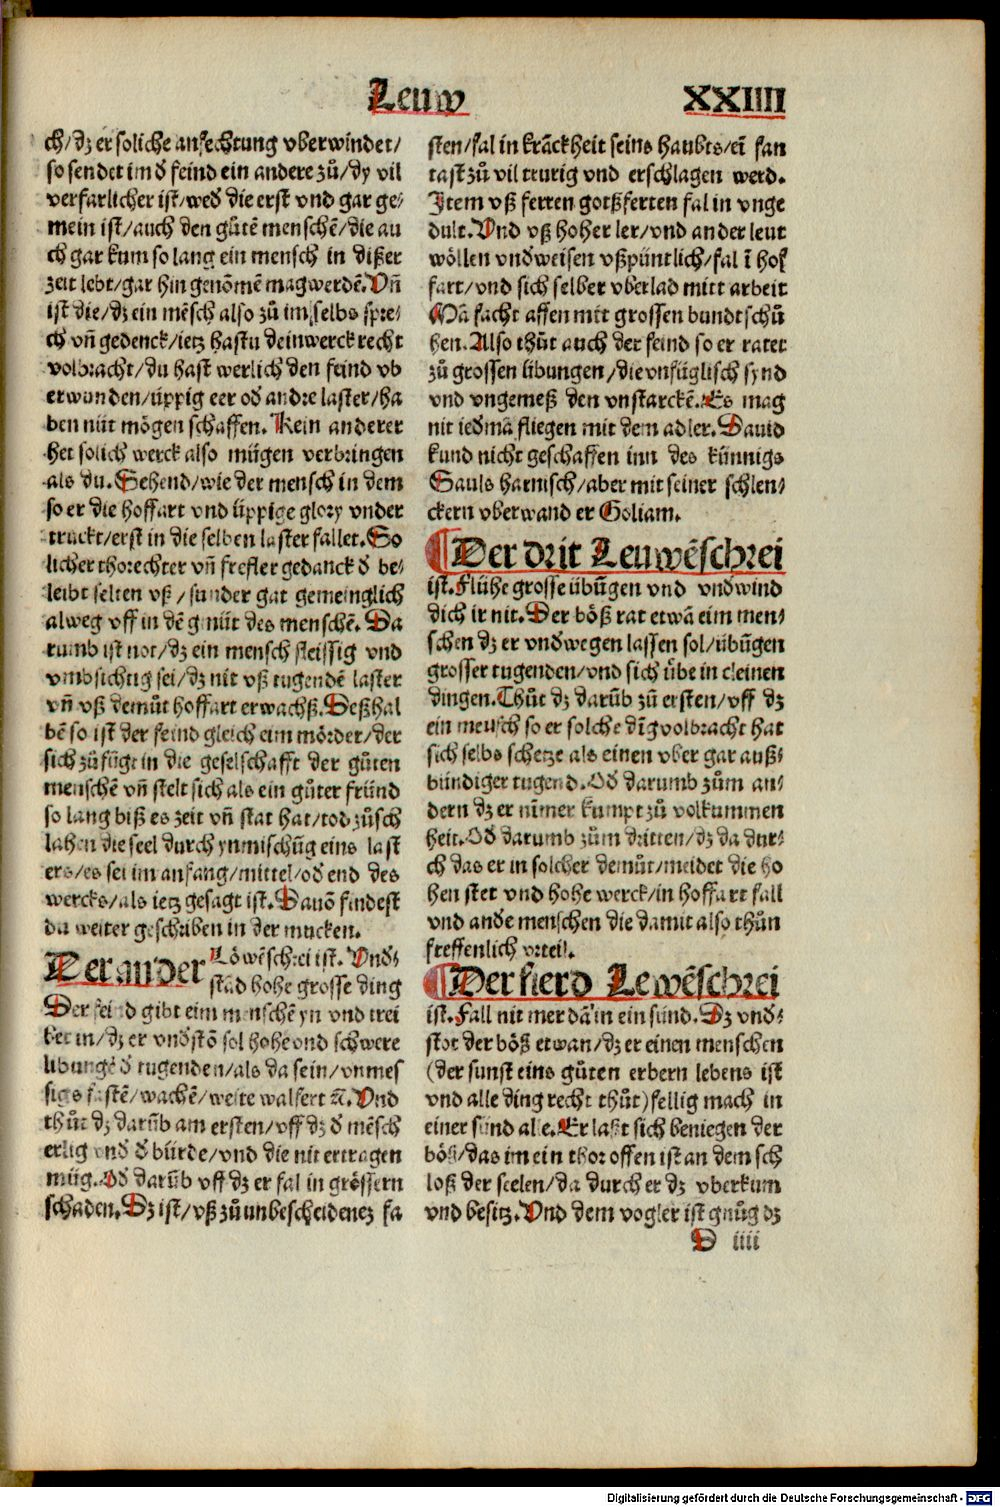 Leuw XXIIII
ch/dz er soliche anfechtung vberwindet/
so sendet im d̕ feind ein andere zů/dy vil
verfarlicher ist/wed̕ die erst vnd gar ge⸗
mein ist/auch den gůtē menschē/die au
ch gar kum so lang ein mensch in dißer
zeit lebt/gar hin genōmē mag werdē. Vn̄
ist die/dz ein mēsch also zů im selbs spre⸗
ch vn̄ gedenck/ietz hastu dein werck recht
volbracht/du hast werlich den feind vb
erwunden/üppig eer od̕ andre laster/ha
ben nüt mögen schaffen. Kein anderer
het solich werck also mügen verbringen
als du. Sehend/wie der mensch in dem
so er die hoffart vnd üppige glory vnder
truckt/erst in die selben laster fallet. So
licher thorechter vn̄ frefler gedanck d̕ be⸗
leibt selten vß/sunder gar gemeinglich
alweg vff in dē gmüt des menschē. Da
rumb ist not/dz ein mensch fleissig vnd
vmbsichtig sei/dz nit vß tugendē laster
vn̄ vß demůt hoffart erwachß. Deßhal
bē so ist der feind gleich eim mörder/der
sich zů fügt in die geselschafft der gůten
menschē vn̄ stelt sich als ein gůter fründ
so lang biß es zeit vn̄ stat hat/tod zůsch
lahen die seel durch ynmischūg eins last
ers/es sei im anfang/mittel/od̕ end des
wercks/als ietz gesagt ist. Dauō findest
du weiter geschriben in der mucken.
Der ander Löwēschrei ist. Vnd⸗
stād hohe grosse ding
Der feind gibt eim menschē yn vnd trei
bet in/dz er vnd̕stō sol hohe vnd schwere
übungē d̕ tugenden/als da sein/vnmes
sigs fastē/wachē/weite walfert ꝛc. Vnd
thůt dz darūb am ersten/vff dz d̕ mēsch
erlig vnd̕ d̕ bürde/vnd die nit ertragen
müg. Od̕ darūb vff dz er fal in grössern
schaden. Dz ist/vß zů unbescheidenez fa
sten/fal in krāckheit seins haubts/eī fan
tast zů vil trurig vnd erschlagen werd.
Item vß ferren gotßferten fal in vnge
dult. Vnd vß hoher ler/vnd ander leut
wöllen vndweisen vßpüntlich/fal ī hof
fart/vnd sich selber vberlad mitt arbeit
Mā facht affen mit grossen bundtschů
hen. Also thůt auch der feind so er ratet
zů grossen übungen/die vnfüglisch synd
vnd vngemeß den vnstarckē. Es mag
nit iedmā fliegen mit dem adler. Dauid
kund nicht geschaffen inn des künnigs
Sauls harnisch/aber mit seiner schlen⸗
ckern vberwand er Goliam.
¶Der drit Leuwēschrei
ist. Flühe grosse übūgen vnd vndwind
dich ir nit. Der böß rat etwā eim men⸗
schen dz er vndwegen lassen sol/übūgen
grosser tugenden/vnd sich übe in cleinen
dingen. Thůt dz darūb zū ersten/vff dz
ein mensch so er solche dīg volbracht hat
sich selbs schetze als einen vber gar auß⸗
bündiger tugend. Od̕ darumb zům an⸗
dern dz er nūmer kumpt zů volkummen
heit. Od̕ darumb zům dritten/dz da dur⸗
ch das er in solcher demůt/meidet die ho
hen stet vnd hohe werck/in hoffart fall
vnd ande menschen die damit also thůn
freffenlich vrteil.
¶Der fierd Lewēschrei
ist. Fall nit mer dā in ein sünd. Dz vnd⸗
stot der böß etwan/dz er einen menschen
(der sunst eins gůten erbern lebens ist
vnd alle ding recht thůt) fellig mach in
einer sünd alle. Er laßt sich beniegen der
böß/das im ein thor offen ist an dem sch
loß der seelen/da durch er dz vberkum
vnd besitz. Vnd dem vogler ist gnůg dz
D iiii
Digitalisierung gefördert durch die Deutsche Forschungsgemeinschaft - DFG